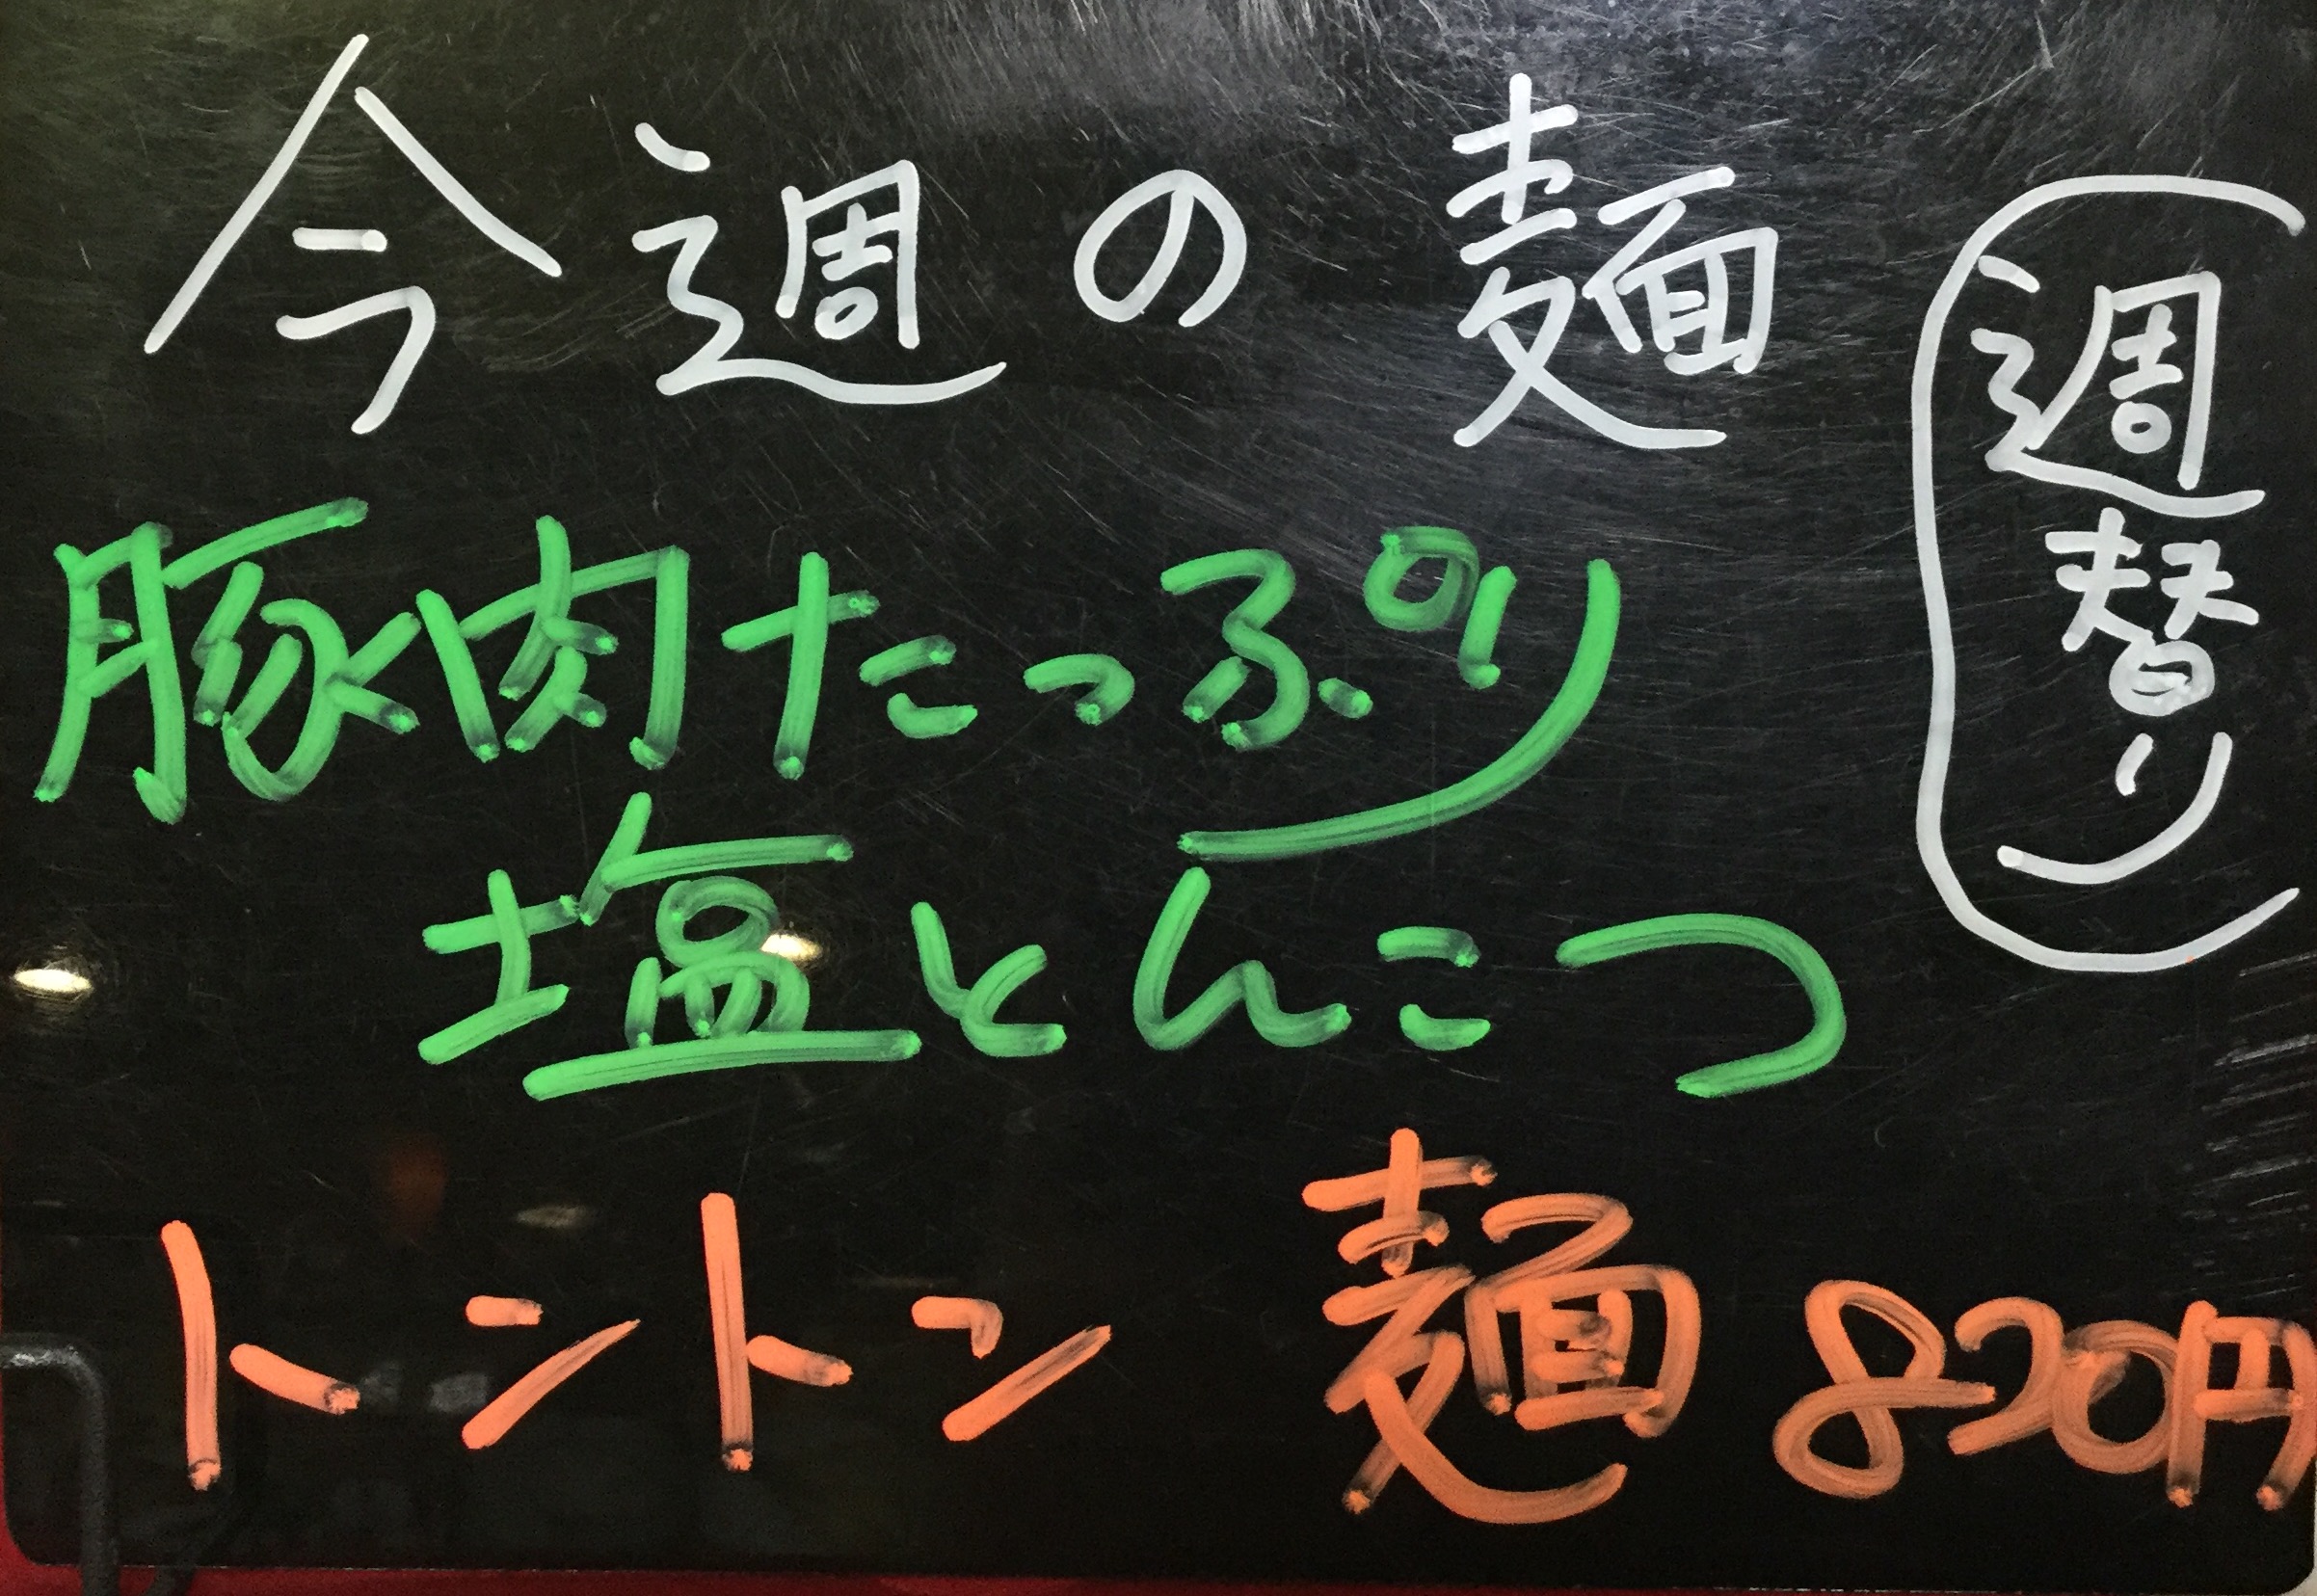 今週の麺
週替り
豚肉たっぷり
塩とんこつ
トントン麺 820円